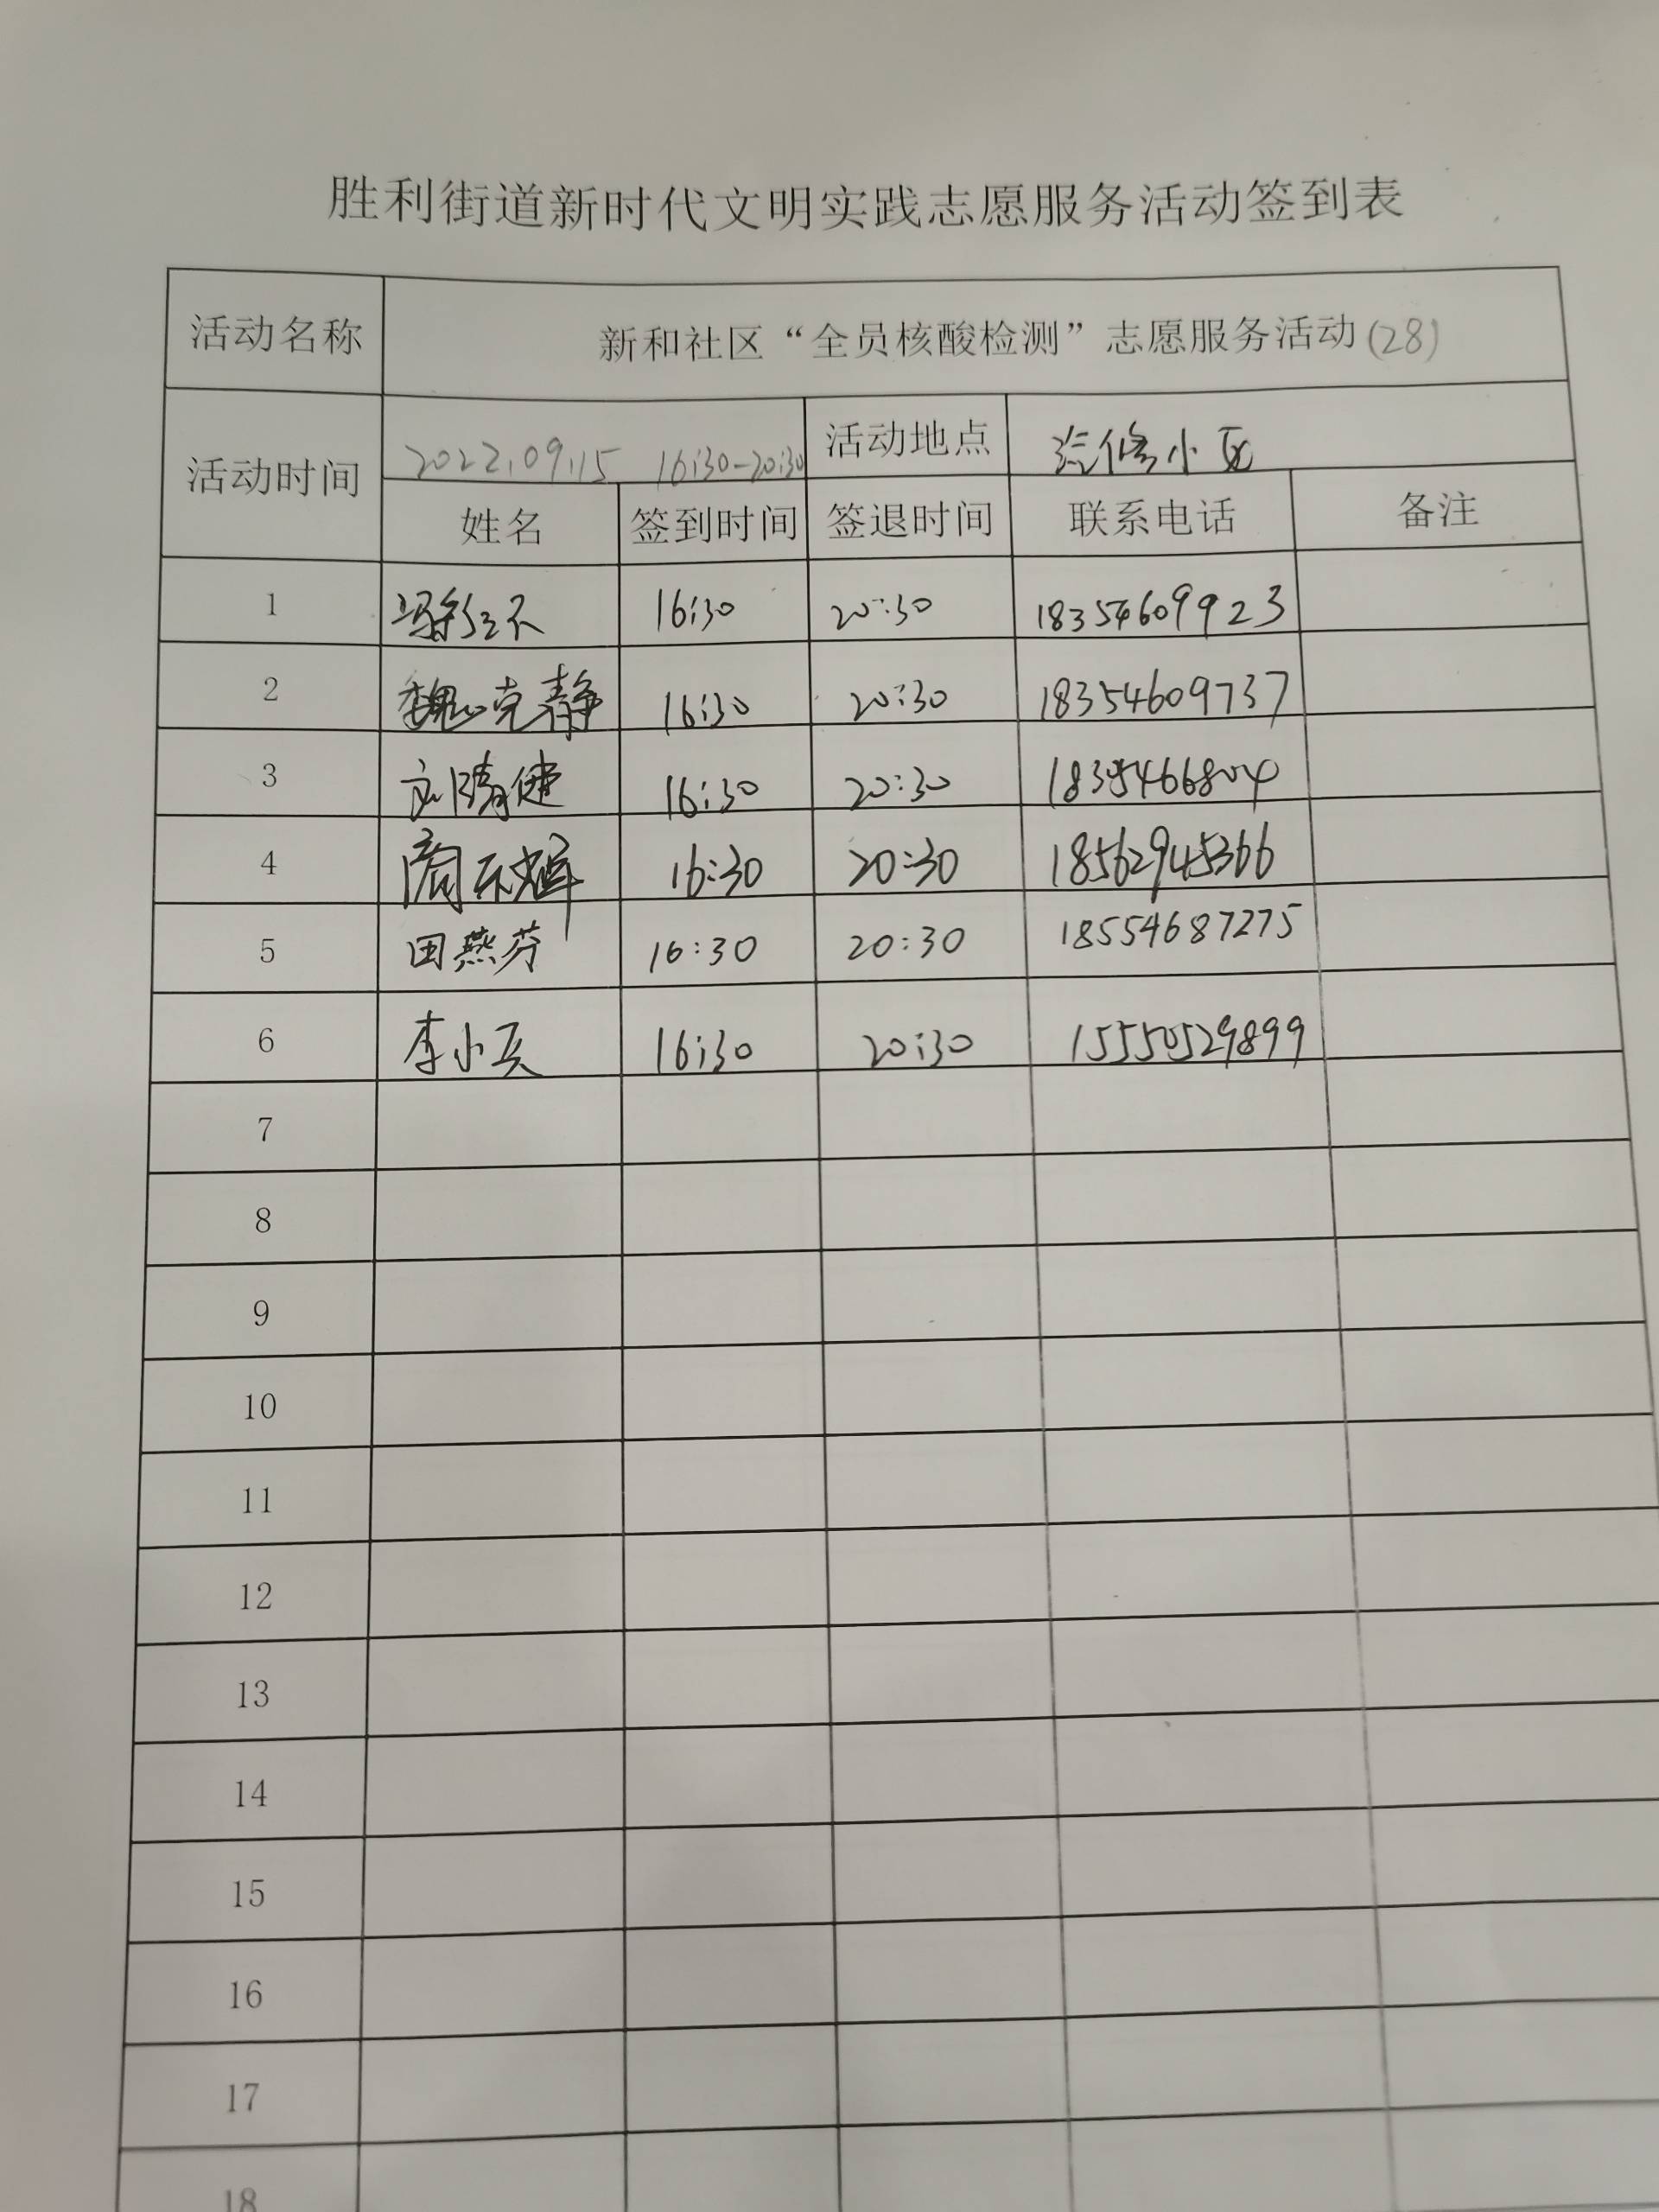 胜利街道新时代文明实践志愿服务活动签到表
活动名称 新和社区“全员核酸检测”志愿服务活动(28)
活动时间 2022.09.15 16:30-20:30 活动地点 汽修小区
姓名 签到时间 签退时间 联系电话 备注
1 16:30 20:30 18354609923
2 魏克静 16:30 20:30 18354609737
3 刘清健 16:30 20:30
4 16:30 20:30 18562945366
5 田燕芬 16:30 20:30 18554687275
6 李小兵 16:30 20:30 15550529899
7
8
9
10
11
12
13
14
15
16
17
18